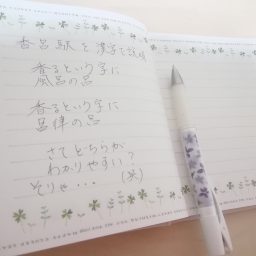 香呂駅を漢字で説明
香るという字に
風呂の呂
香るという字に
呂律の呂
さてどちらが
わかりやすい?
そりゃ・・・ (笑)